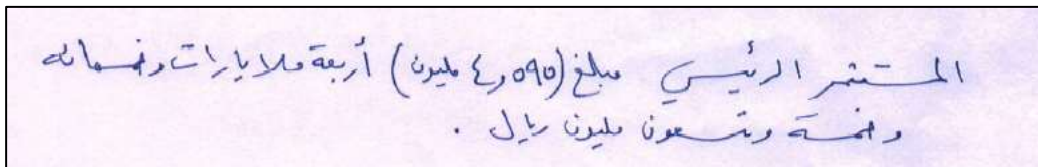 المستثمر الرئيسي مبلغ (٤,٥٩٥ مليون) أربعة ملايارات وخمسمائه
وخمسة وتسعون مليون ريال .